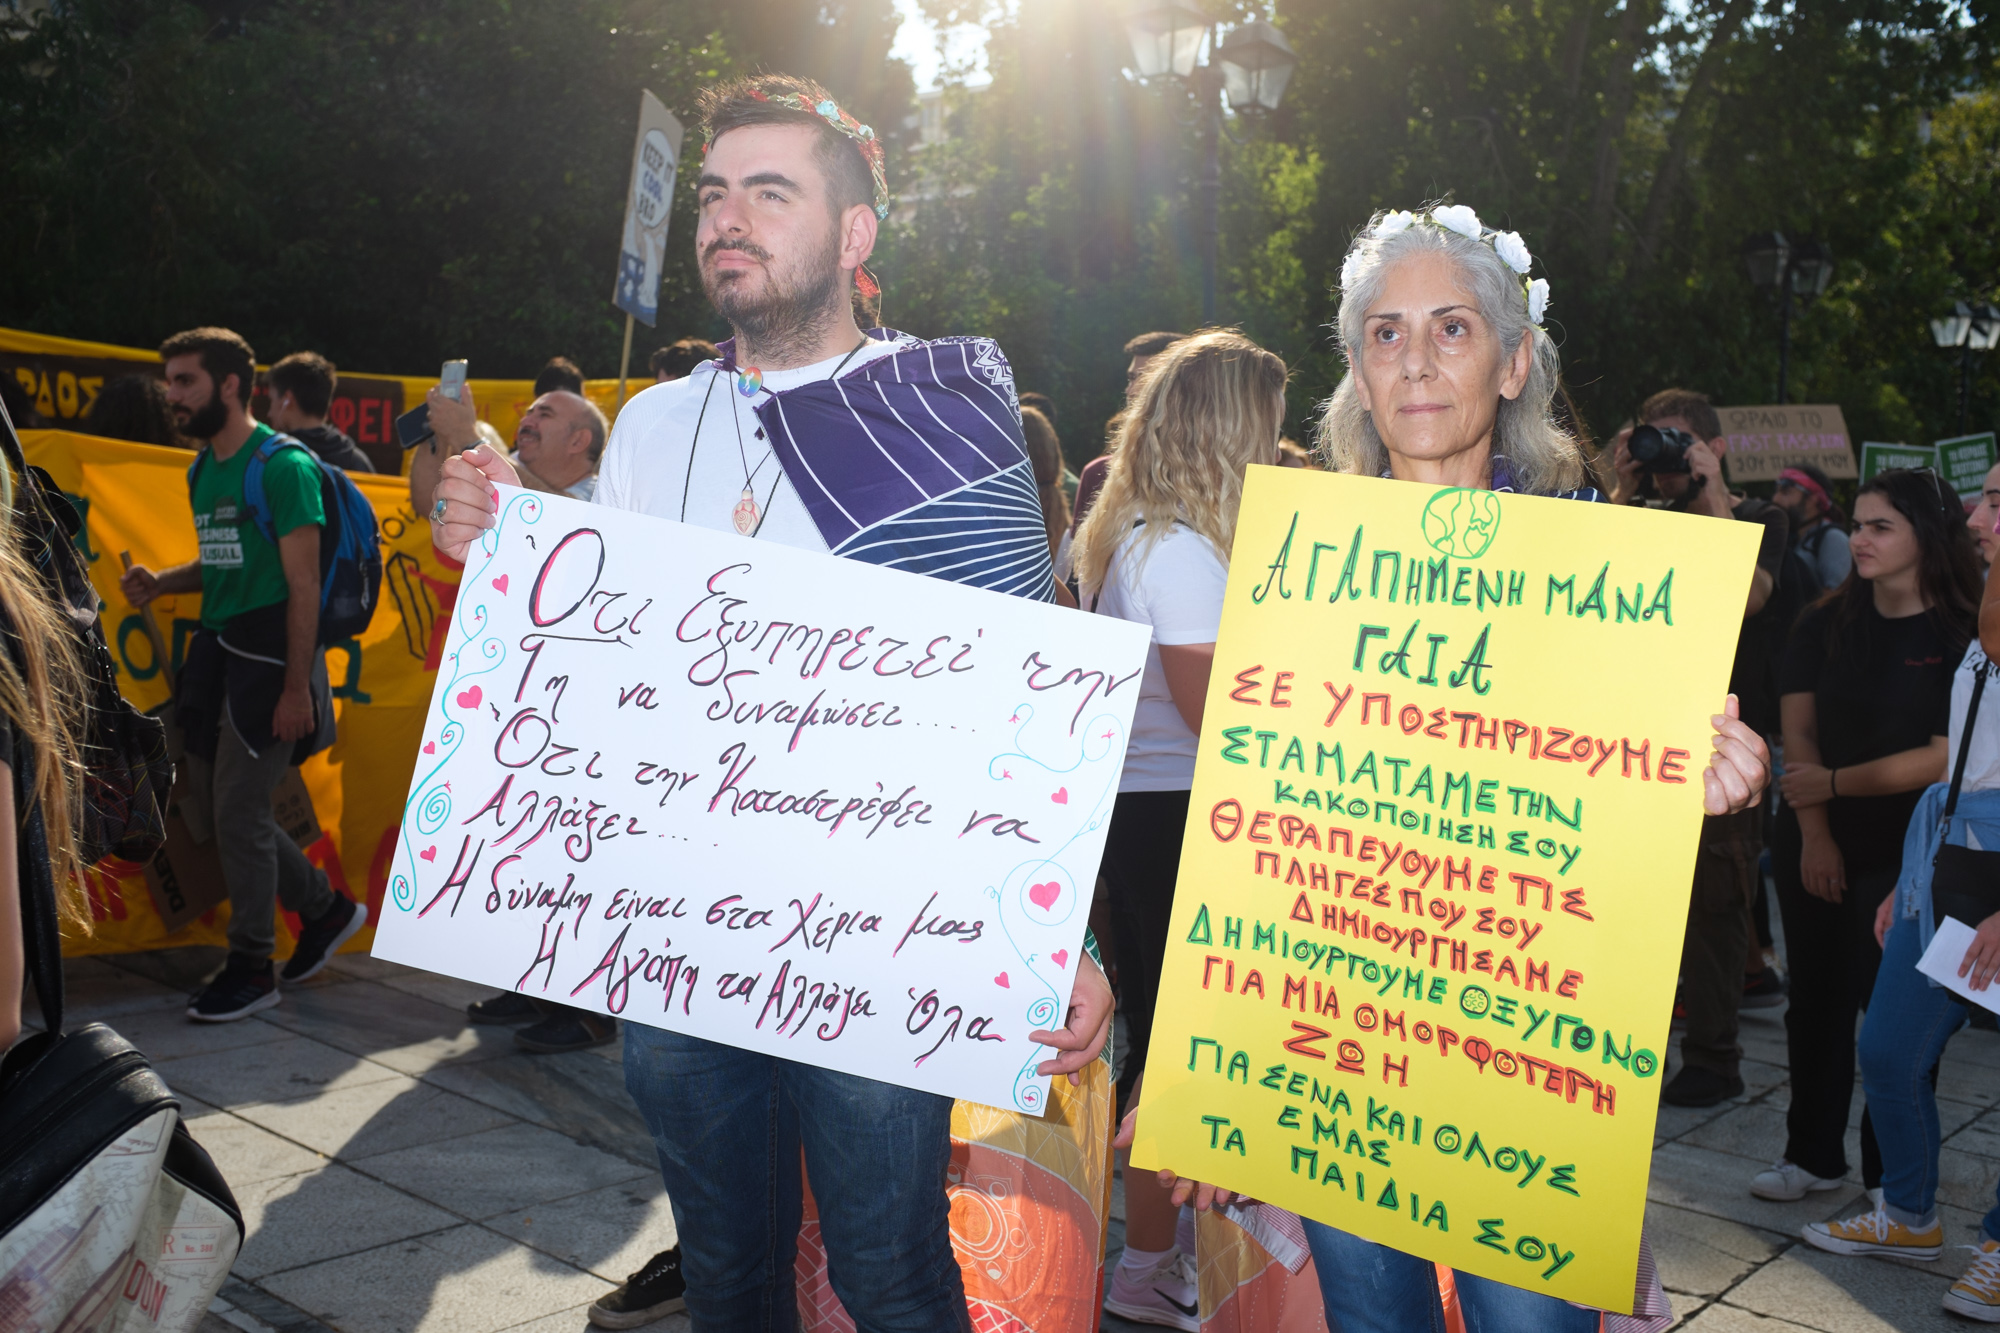 KEEP IT
COOL
BRO
Ότι Εξυπηρετεί την
Γη να δυναμώσει....
Ότι την Καταστρέφει να
Αλλάξει....
Η δύναμη είναι στα χέρια μας
Η Αγάπη τα Αλλάζει Όλα
ΑΓΑΠΗΜΕΝΗ ΜΑΝΑ
ΓΑΙΑ
ΣΕ ΥΠΟΣΤΗΡΙΖΟΥΜΕ
ΣΤΑΜΑΤΑΜΕ ΤΗΝ
ΚΑΚΟΠΟΙΗΣΗ ΣΟΥ
ΘΕΡΑΠΕΥΟΥΜΕ ΤΙΣ
ΠΛΗΓΕΣ ΠΟΥ ΣΟΥ
ΔΗΜΙΟΥΡΓΗΣΑΜΕ
ΔΗΜΙΟΥΡΓΟΥΜΕ ΟΞΥΓΟΝΟ
ΓΙΑ ΜΙΑ ΟΜΟΡΦΟΤΕΡΗ
ΖΩΗ
ΓΙΑ ΣΕΝΑ ΚΑΙ ΟΛΟΥΣ
ΕΜΑΣ
ΤΑ ΠΑΙΔΙΑ ΣΟΥ
ΩΡΑΙΟ ΤΟ
FAST FASHION
ΣΟΥ ΠΑΙΔΙ ΜΟΥ
USUAL
DON
No. 388